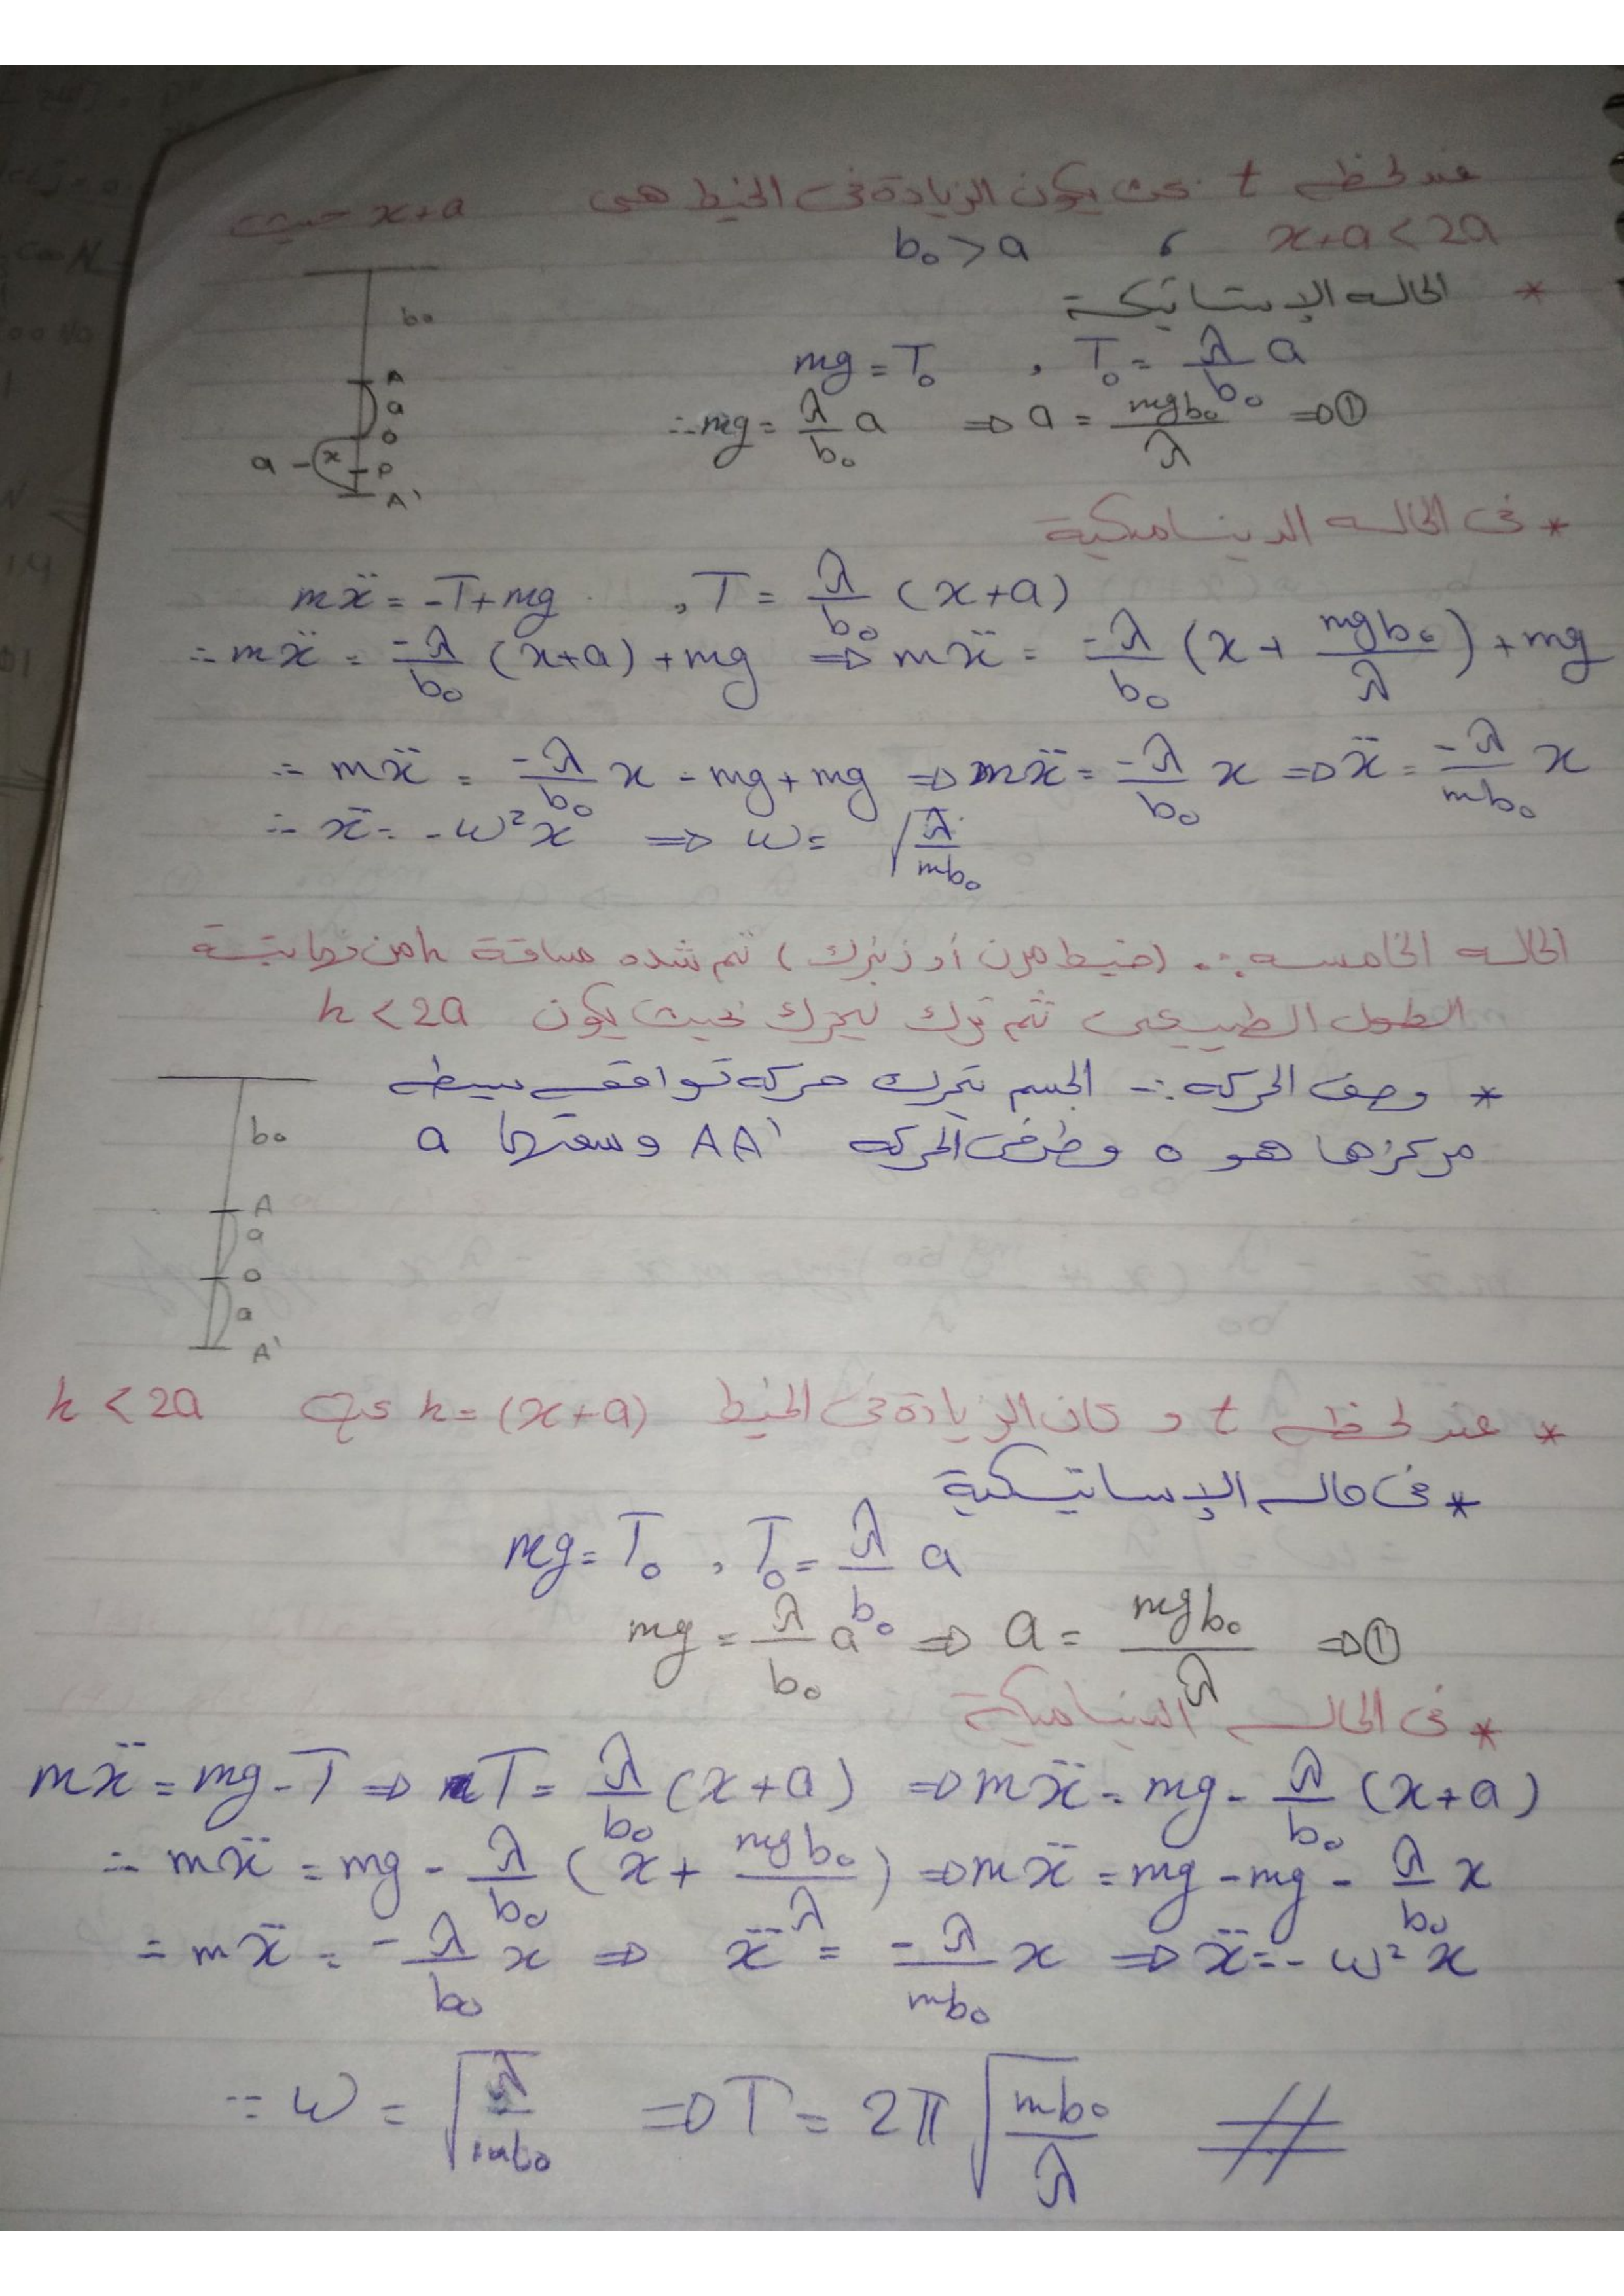 عند لحظه t بحيث يكون الزيادة فى الخيط هى x+a حيث
x+a<2a ، b₀>a
* الحاله الإستاتيكية
b₀
A
a
o
a - x
P
A'
mg = T₀ , T₀ = λ/b₀ a
∴ mg = λ/b₀ a ⇒ a = mgb₀/λ ⇒①
* فى الحاله الديناميكية
mẍ = -T+mg , T = λ/b₀ (x+a)
∴ mẍ = -λ/b₀ (x+a) + mg ⇒ mẍ = -λ/b₀ (x + mgb₀/λ) + mg
∴ mẍ = -λ/b₀ x - mg + mg ⇒ mẍ = -λ/b₀ x ⇒ ẍ = -λ/mb₀ x
∴ ẍ = -ω²x ⇒ ω = √(λ/mb₀)
الحاله الخامسه :. (خيط مرن أو زنبرك) تم شده مسافة h من نهايتة
الطول الطبيعى ثم ترك ليتحرك بحيث يكون h<2a
* وصف الحركه :- الجسم يتحرك حركه توافقيه بسيطه
مركزها هو o وطرفى الحركه AA' وسعتها a
b₀
A
a
o
a
A'
* عند لحظه t و كان الزيادة فى الخيط h = (x+a) حيث h<2a
* فى حاله الإستاتيكية
mg = T₀ , T₀ = λ/b₀ a
mg = λ/b₀ a ⇒ a = mgb₀/λ ⇒①
* فى الحاله الديناميكية
mẍ = mg-T ⇒ T = λ/b₀ (x+a) ⇒ mẍ = mg - λ/b₀ (x+a)
∴ mẍ = mg - λ/b₀ (x + mgb₀/λ) ⇒ mẍ = mg - mg - λ/b₀ x
= mẍ = -λ/b₀ x ⇒ ẍ = -λ/mb₀ x ⇒ ẍ = -ω²x
∴ ω = √(λ/mb₀) ⇒ T = 2π √(mb₀/λ) #